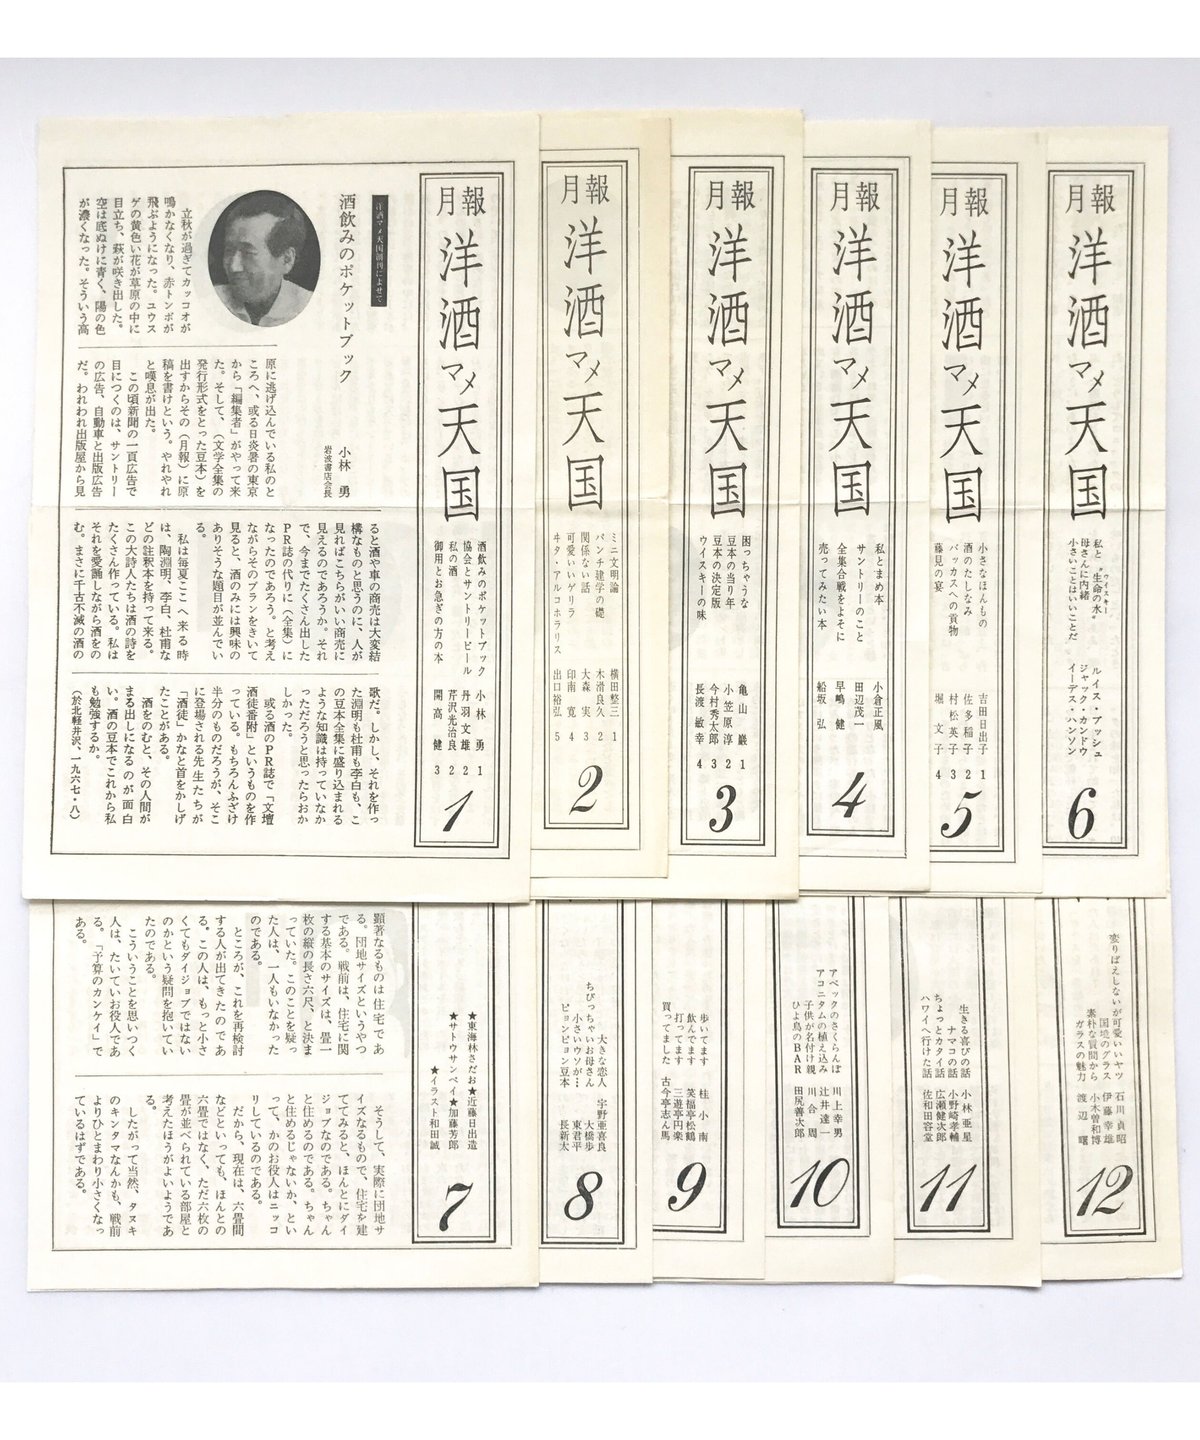 月報
洋酒マメ天国
酒飲みのポケットブック 小林 勇 1
協会とサントリービール 丹羽文雄 2
私の酒 芹沢光治良 2
御用とお急ぎの方の本 開高 健 3
1
洋酒マメ天国創刊によせて
酒飲みのポケットブック
小林 勇
岩波書店会長
立秋が過ぎてカッコオが
鳴かなくなり、赤トンボが
飛ぶようになった。ユウス
ゲの黄色い花が草原の中に
目立ち、萩が咲き出した。
空は底ぬけに青く、陽の色
が濃くなった。そういう高
原に逃げ込んでいる私のと
ころへ、或る日炎暑の東京
から「編集者」がやって来
た。そして、(文学全集の
発行形式をとった豆本)を
出すからその(月報)に原
稿を書けという。やれやれ
と嘆息が出た。
この頃新聞の一頁広告で
目につくのは、サントリー
の広告、自動車と出版広告
だ。われわれ出版屋から見
ると酒や車の商売は大変結
構なものと思うのに、人が
見ればこちらがいい商売に
見えるのであろうか。それ
で、今までたくさん出した
PR誌の代りに(全集)に
なったのであろう。と考え
ながらそのプランをきいて
見ると、酒のみには興味の
ありそうな題目が並んでい
る。
私は毎夏ここへ来る時
は、陶淵明、李白、杜甫な
どの註釈本を持って来る。
この大詩人たちは酒の詩を
たくさん作っている。私は
それを愛誦しながら酒をの
む。まさに千古不滅の酒の
歌だ。しかし、それを作っ
た淵明も杜甫も李白も、こ
の豆本全集に盛り込まれる
ような知識は持っていなか
っただろうと思ったらおか
しかった。
或る酒のPR誌で「文壇
酒徒番附」というものを作
っている。もちろんふざけ
半分のものだろうが、そこ
に登場される先生たちが
「酒徒」かなと首をかしげ
たことがある。
酒をのむと、その人間が
まる出しになるのが面白
い。酒の豆本でこれから私
も勉強するか。
(於北軽井沢、一九六七・八)
月報
洋酒マメ天国
ミニ文明論 横田整三 1
パンチ建学の礎 木滑良久 2
関係ない話 大森 実 3
可愛いいゲリラ 印南 寛 4
ヰタ・アルコホラリス 出口裕弘 5
2
月報
洋酒マメ天国
困っちゃうな 亀山 巌 1
豆本の当り年 小笠原淳 2
豆本の決定版 今村秀太郎 3
ウイスキーの味 長渡敏幸 4
3
月報
洋酒マメ天国
私とまめ本 小倉正風
サントリーのこと 田辺茂一
全集合戦をよそに 早嶋 健
売ってみたい本 船坂 弘
4
月報
洋酒マメ天国
小さなほんもの 吉田日出子 1
酒のたしなみ 佐多稲子 2
バッカスへの貢物 村松英子 3
藤見の宴 堀 文子 4
5
月報
洋酒マメ天国
私と“生命の水” ルイス・ブッシュ
ウイスキー
母さんに内緒 ジャック・カンドウ
小さいことはいいことだ イーデス・ハンソン
6
★東海林さだお★近藤日出造
★サトウサンペイ★加藤芳郎
★イラスト和田誠
7
顕著なるものは住宅であ
る。団地サイズというやつ
である。戦前は、住宅に関
する基本のサイズは、畳一
枚の縦の長さ六尺、と決ま
っていた。このことを疑っ
た人は、一人もいなかった
のである。
ところが、これを再検討
する人が出てきたのであ
る。この人は、もっと小さ
くてもダイジョブではない
のかという疑問を抱いてい
たのである。
こういうことを思いつく
人は、たいていお役人であ
る。「予算のカンケイ」で
ある。
そうして、実際に団地サ
イズなるもので、住宅を建
ててみると、ほんとにダイ
ジョブなのである。ちゃん
と住めるのである。ちゃん
と住めるじゃないか、とい
って、かのお役人はニッコ
リしているのである。
だから、現在は、六畳間
などといっても、ほんとの
六畳ではなく、ただ六枚の
畳が並べられている部屋と
考えたほうがよいようであ
る。
したがって当然、タヌキ
のキンタマなんかも、戦前
よりひとまわり小さくなっ
ているはずである。
大きな恋人 宇野亜喜良
ちびっちゃいお母さん 大橋歩
小さいウソが… 東君平
ピョンピョン豆本 長新太
8
歩いてます 桂 小南
飲んでます 笑福亭松鶴
打ってます 三遊亭円楽
買ってました 古今亭志ん馬
9
アベックのさくらんぼ 川上幸男
アコニタムの植え込み 辻井達一
子供が名付け親 川合 周
ひよ鳥のBAR 田尻善次郎
10
生きる喜びの話 小林亜星
ナマコの話 小野崎孝輔
ちょっとカタイ話 広瀬健次郎
ハワイへ行けた話 佐和田容堂
11
変りばえしないが可愛いいヤツ 石川貞昭
国境のグラス 伊藤幸雄
素朴な質問から 小木曽和博
ガラスの魅力 渡辺 曙
12